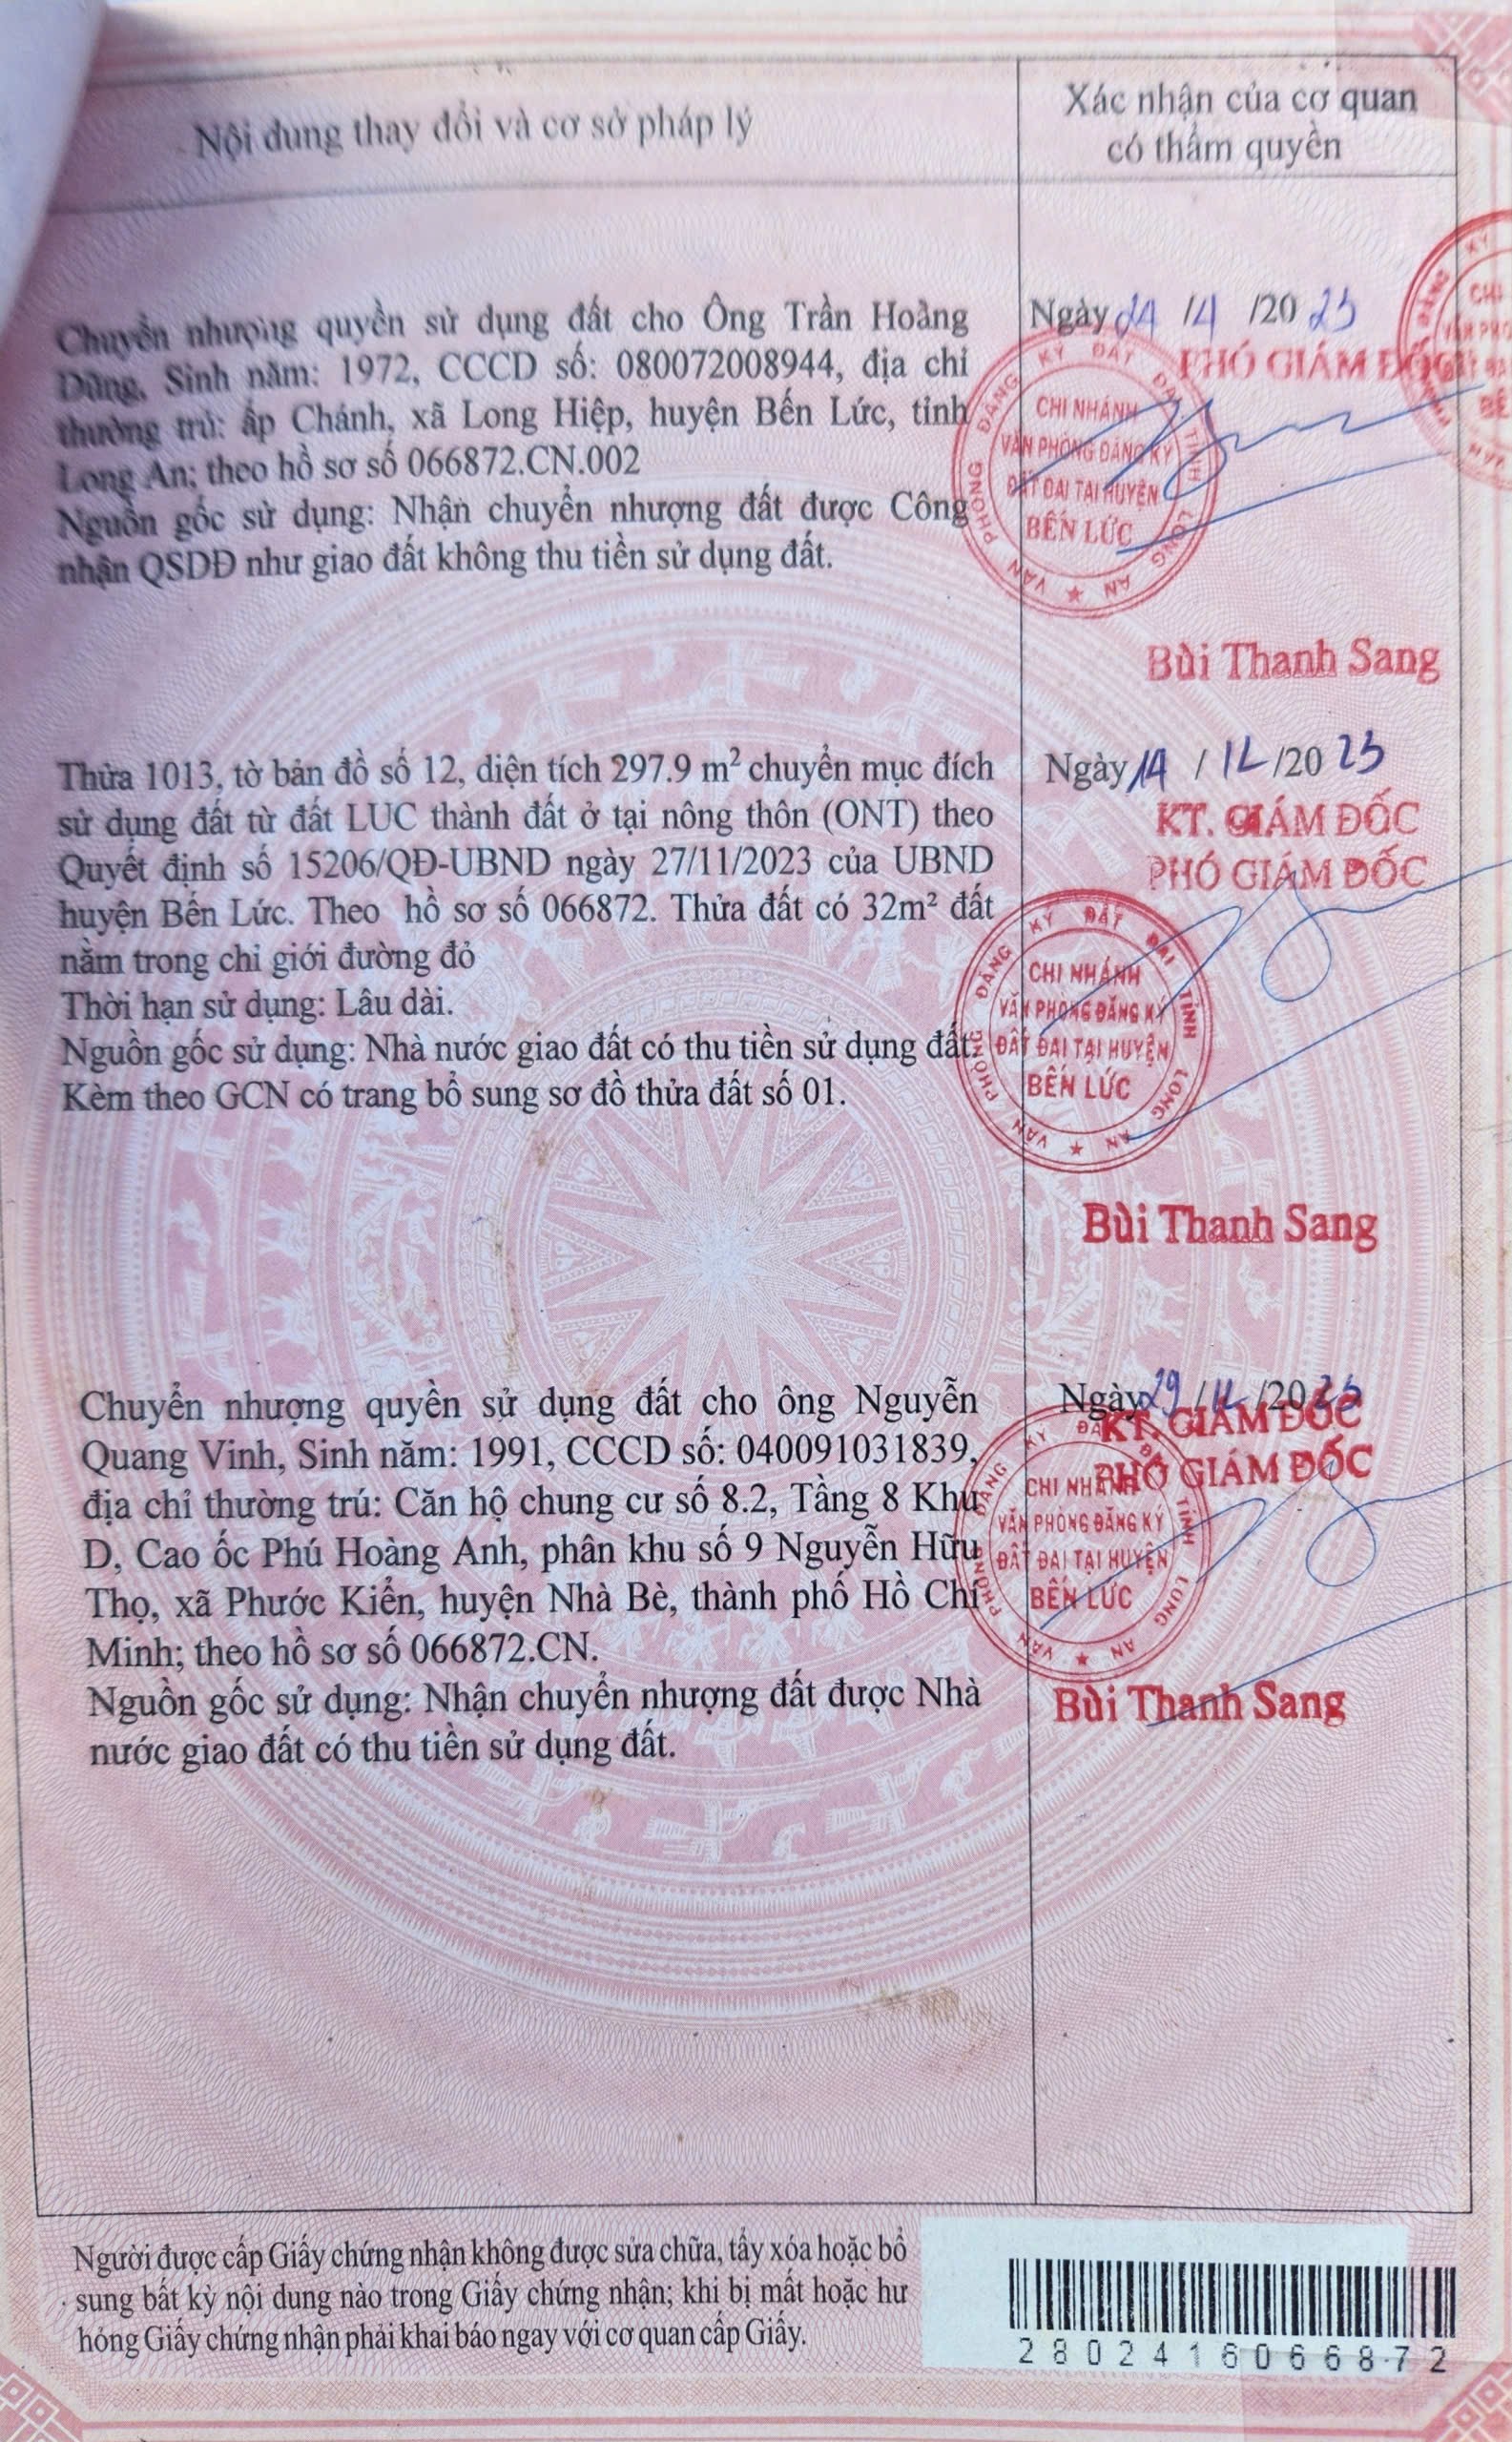 Nội dung thay đổi và cơ sở pháp lý
Xác nhận của cơ quan
có thẩm quyền
Chuyển nhượng quyền sử dụng đất cho Ông Trần Hoàng
Dũng, Sinh năm: 1972, CCCD số: 080072008944, địa chỉ
thường trú: ấp Chánh, xã Long Hiệp, huyện Bến Lức, tỉnh
Long An; theo hồ sơ số 066872.CN.002
Nguồn gốc sử dụng: Nhận chuyển nhượng đất được Công
nhận QSDĐ như giao đất không thu tiền sử dụng đất.
Ngày 24 /4 /20 23
PHÓ GIÁM ĐỐC
VĂN PHÒNG ĐĂNG KÝ ĐẤT ĐAI TỈNH LONG AN
CHI NHÁNH
VĂN PHÒNG ĐĂNG KÝ
ĐẤT ĐAI TẠI HUYỆN
BẾN LỨC
Bùi Thanh Sang
Thửa 1013, tờ bản đồ số 12, diện tích 297.9 m² chuyển mục đích
sử dụng đất từ đất LUC thành đất ở tại nông thôn (ONT) theo
Quyết định số 15206/QĐ-UBND ngày 27/11/2023 của UBND
huyện Bến Lức. Theo hồ sơ số 066872. Thửa đất có 32m² đất
nằm trong chỉ giới đường đỏ
Thời hạn sử dụng: Lâu dài.
Nguồn gốc sử dụng: Nhà nước giao đất có thu tiền sử dụng đất.
Kèm theo GCN có trang bổ sung sơ đồ thửa đất số 01.
Ngày 14 / 12 /20 23
KT. GIÁM ĐỐC
PHÓ GIÁM ĐỐC
VĂN PHÒNG ĐĂNG KÝ ĐẤT ĐAI TỈNH LONG AN
CHI NHÁNH
VĂN PHÒNG ĐĂNG KÝ
ĐẤT ĐAI TẠI HUYỆN
BẾN LỨC
Bùi Thanh Sang
Chuyển nhượng quyền sử dụng đất cho ông Nguyễn
Quang Vinh, Sinh năm: 1991, CCCD số: 040091031839,
địa chỉ thường trú: Căn hộ chung cư số 8.2, Tầng 8 Khu
D, Cao ốc Phú Hoàng Anh, phân khu số 9 Nguyễn Hữu
Thọ, xã Phước Kiển, huyện Nhà Bè, thành phố Hồ Chí
Minh; theo hồ sơ số 066872.CN.
Nguồn gốc sử dụng: Nhận chuyển nhượng đất được Nhà
nước giao đất có thu tiền sử dụng đất.
Ngày 29 /12 /20 23
KT. GIÁM ĐỐC
PHÓ GIÁM ĐỐC
VĂN PHÒNG ĐĂNG KÝ ĐẤT ĐAI TỈNH LONG AN
CHI NHÁNH
VĂN PHÒNG ĐĂNG KÝ
ĐẤT ĐAI TẠI HUYỆN
BẾN LỨC
Bùi Thanh Sang
Người được cấp Giấy chứng nhận không được sửa chữa, tẩy xóa hoặc bổ
sung bất kỳ nội dung nào trong Giấy chứng nhận; khi bị mất hoặc hư
hỏng Giấy chứng nhận phải khai báo ngay với cơ quan cấp Giấy.
2802416066872